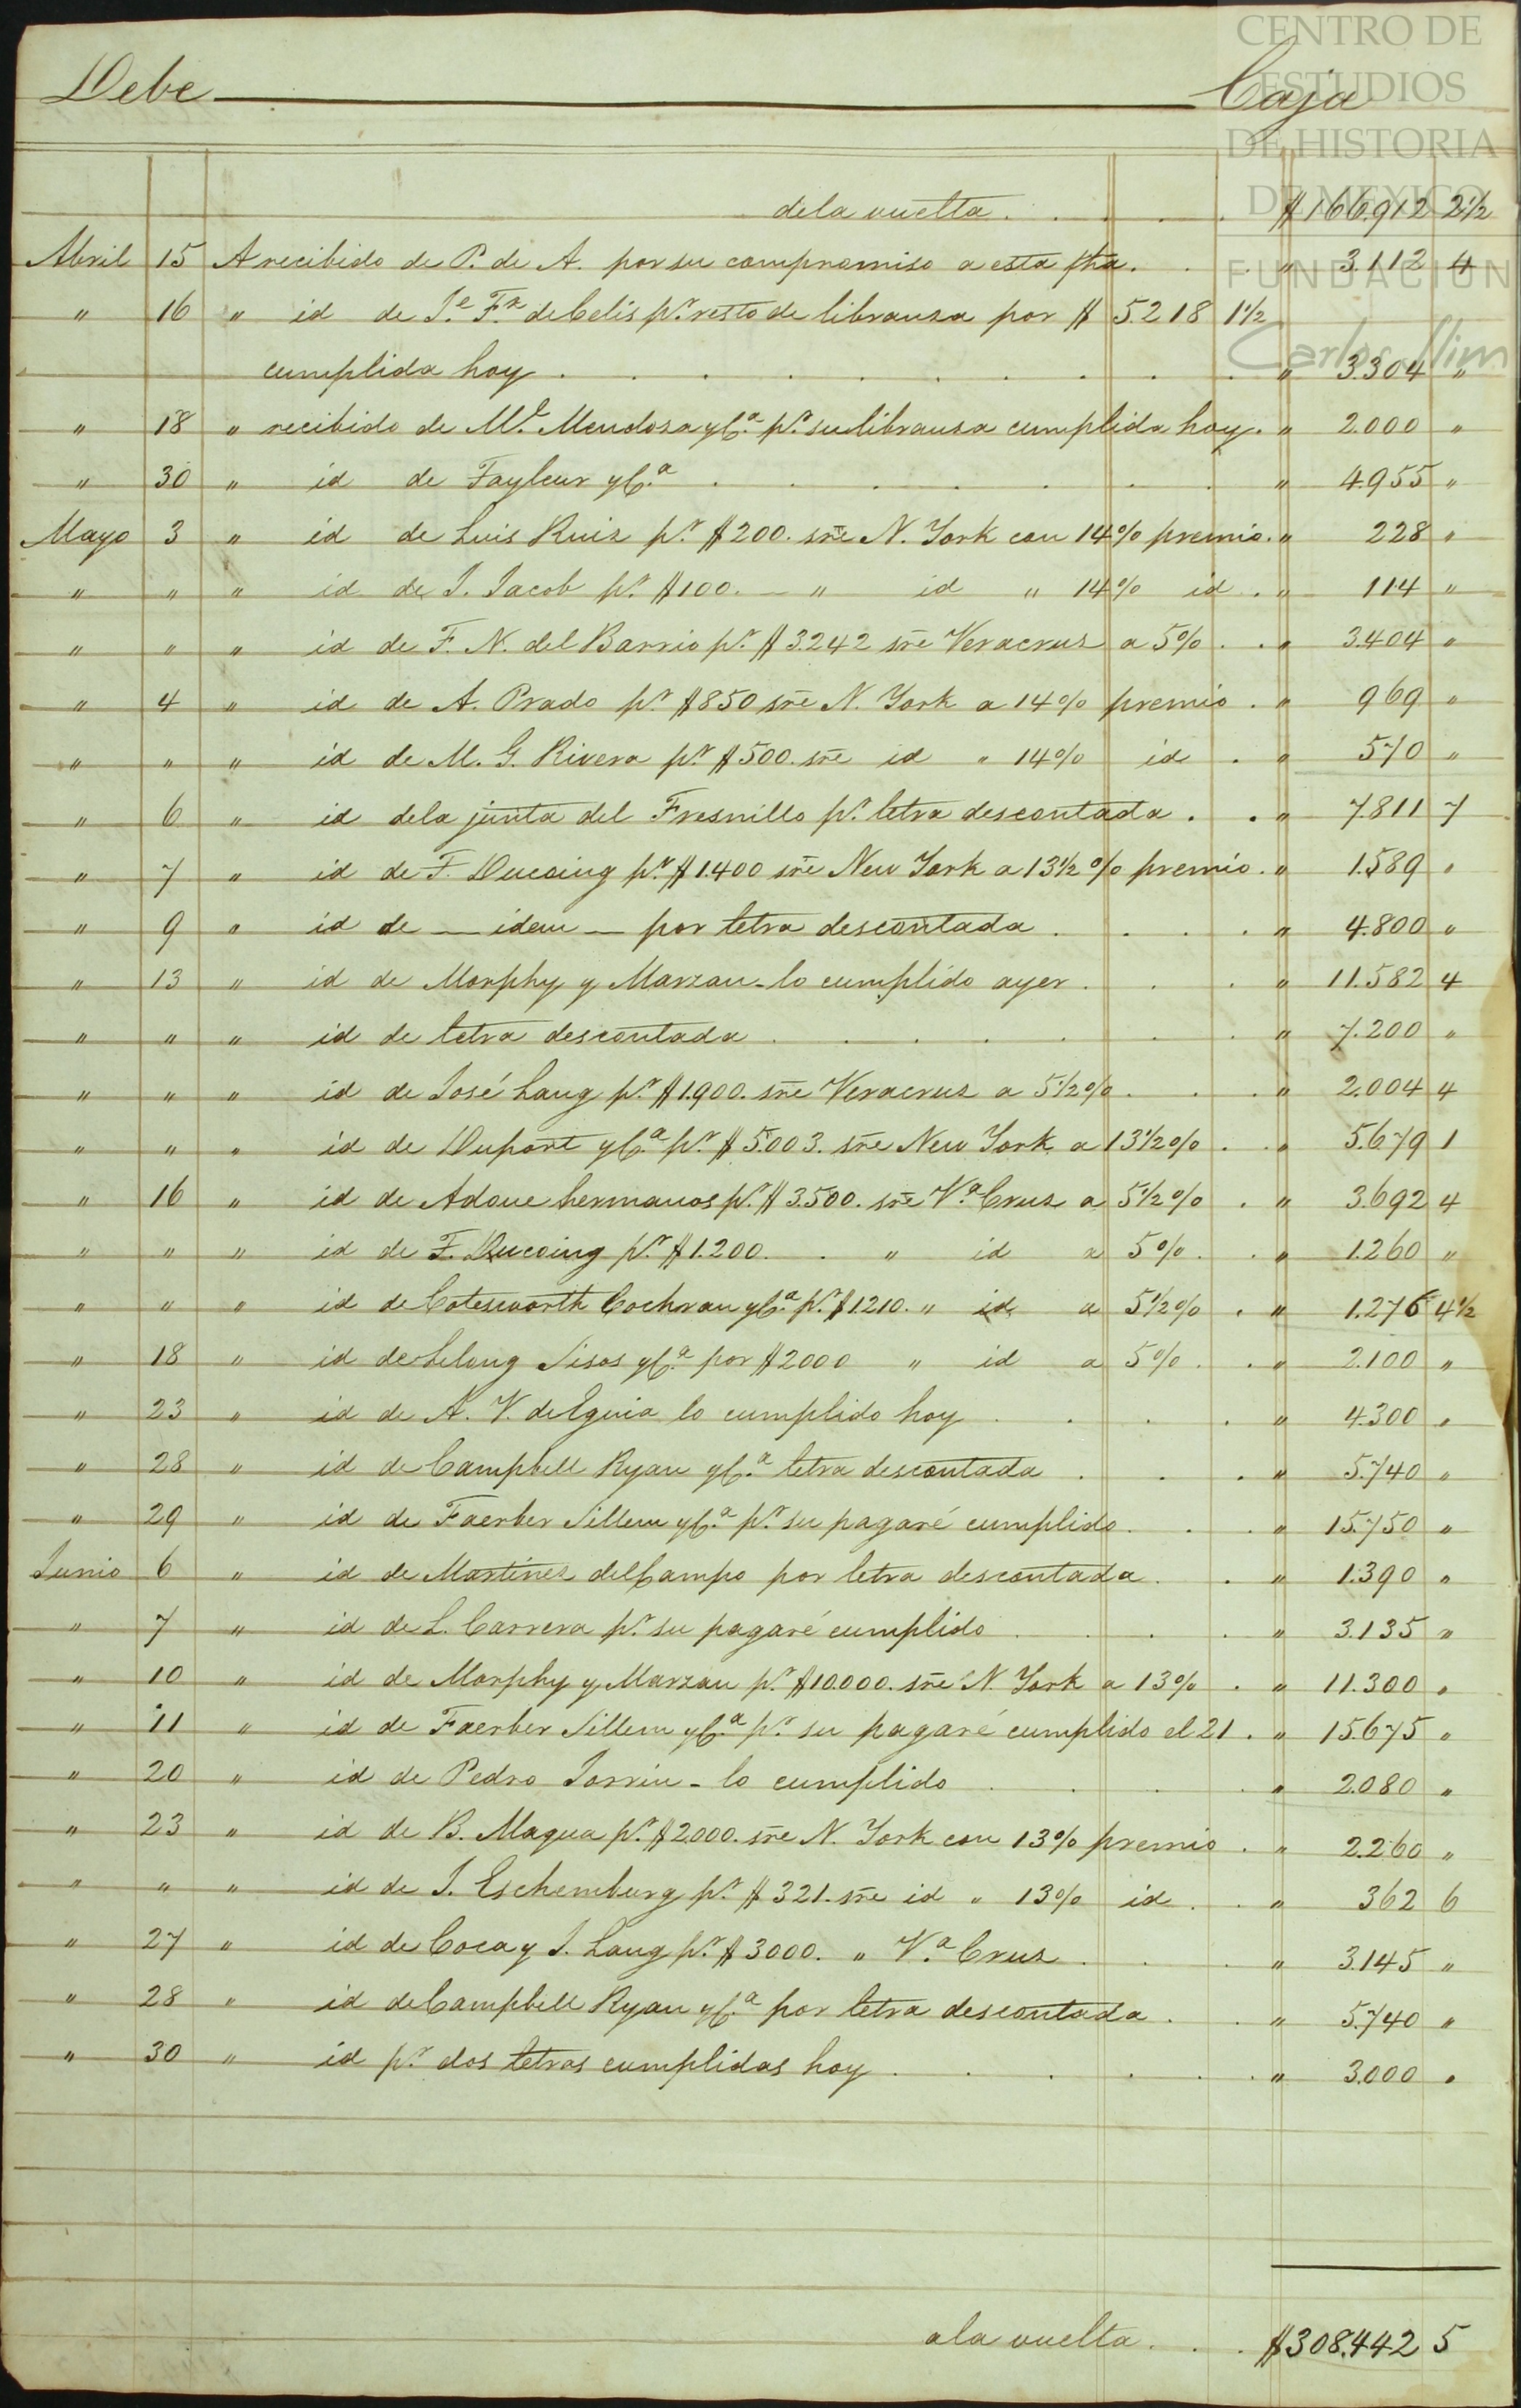 CENTRO DE
ESTUDIOS
DE HISTORIA
DE MEXICO
FUNDACION
Carlos Slim
Debe Caja
dela vuelta . . . . $166.912 2½
Abril 15 A recibido de P. de A. por su compromiso a esta fha. . . " 3.112 4
" 16 " id de J.e F.z de Celis p.r resto de libransa por $ 5.218 1½
cumplida hoy . . . . . . . . . " 3.304 "
" 18 " recibido de M.l Mendosa y C.a p.r su libransa cumplida hoy. " 2.000 "
" 30 " id de Tayleur y C.a . . . . . . . " 4.955 "
Mayo 3 " id de Luis Ruiz p.r $200. sr̃e N. York con 14% premio. " 228 "
" " " id de J. Jacob p.r $100. — " id " 14% id . " 114 "
" " " id de F. N. del Barrio p.r $3.242 sr̃e Veracruz a 5% . . " 3.404 "
" 4 " id de A. Prado p.r $850 sr̃e N. York a 14% premio . " 969 "
" " " id de M. G. Rivera p.r $500. sr̃e id " 14% id . " 570 "
" 6 " id dela junta del Fresnillo p.r letra descontada . . " 7.811 7
" 7 " id de F. Ducoing p.r $1.400 sr̃e New York a 13½% premio. " 1.589 "
" 9 " id de — idem — por letra descontada . . . . " 4.800 "
" 13 " id de Morphy y Marzan - lo cumplido ayer . . . " 11.582 4
" " " id de letra descontada . . . . . . . " 7.200 "
" " " id de José Laug p.r $1.900. sr̃e Veracruz a 5½% . . . " 2.004 4
" " " id de Duport y C.a p.r $5.003. sr̃e New York a 13½% . . " 5.679 1
" 16 " id de Adoue hermanos p.r $3.500. sr̃e V.a Cruz a 5½% . " 3.692 4
" " " id de F. Ducoing p.r $1.200. . " id a 5% . . " 1.260 "
" " " id de Cotesworth Cochran y C.a p.r $1.210. " id a 5½% . " 1.276 4½
" 18 " id de Lelong Sisos y C.a por $2000 " id a 5% . . " 2.100 "
" 23 " id de A. V. de Eguia lo cumplido hoy . . . . " 4.300 "
" 28 " id de Campbell Ryan y C.a letra descontada . . . " 5.740 "
" 29 " id de Faerber Sillem y C.a p.r su pagaré cumplido . . . " 15.750 "
Junio 6 " id de Martinez del Campo por letra descontada . . " 1.390 "
" 7 " id de L. Carrera p.r su pagaré cumplido . . . . " 3.135 "
" 10 " id de Morphy y Marzan p.r $10.000. sr̃e N. York a 13% . " 11.300 "
" 11 " id de Faerber Sillem y C.a p.r su pagaré cumplido el 21 . " 15.675 "
" 20 " id de Pedro Jorrin - lo cumplido . . . . " 2.080 "
" 23 " id de B. Magua p.r $2.000. sr̃e N. York con 13% premio . " 2.260 "
" " " id de J. Eschemburg p.r $321. sr̃e id " 13% id . . " 362 6
" 27 " id de Coca y J. Laug p.r $3000. " V.a Cruz . . . " 3.145 "
" 28 " id de Campbell Ryan y C.a por letra descontada . . " 5.740 "
" 30 " id p.r dos letras cumplidas hoy . . . . . . " 3.000 "
ala vuelta . . . $308.442 5